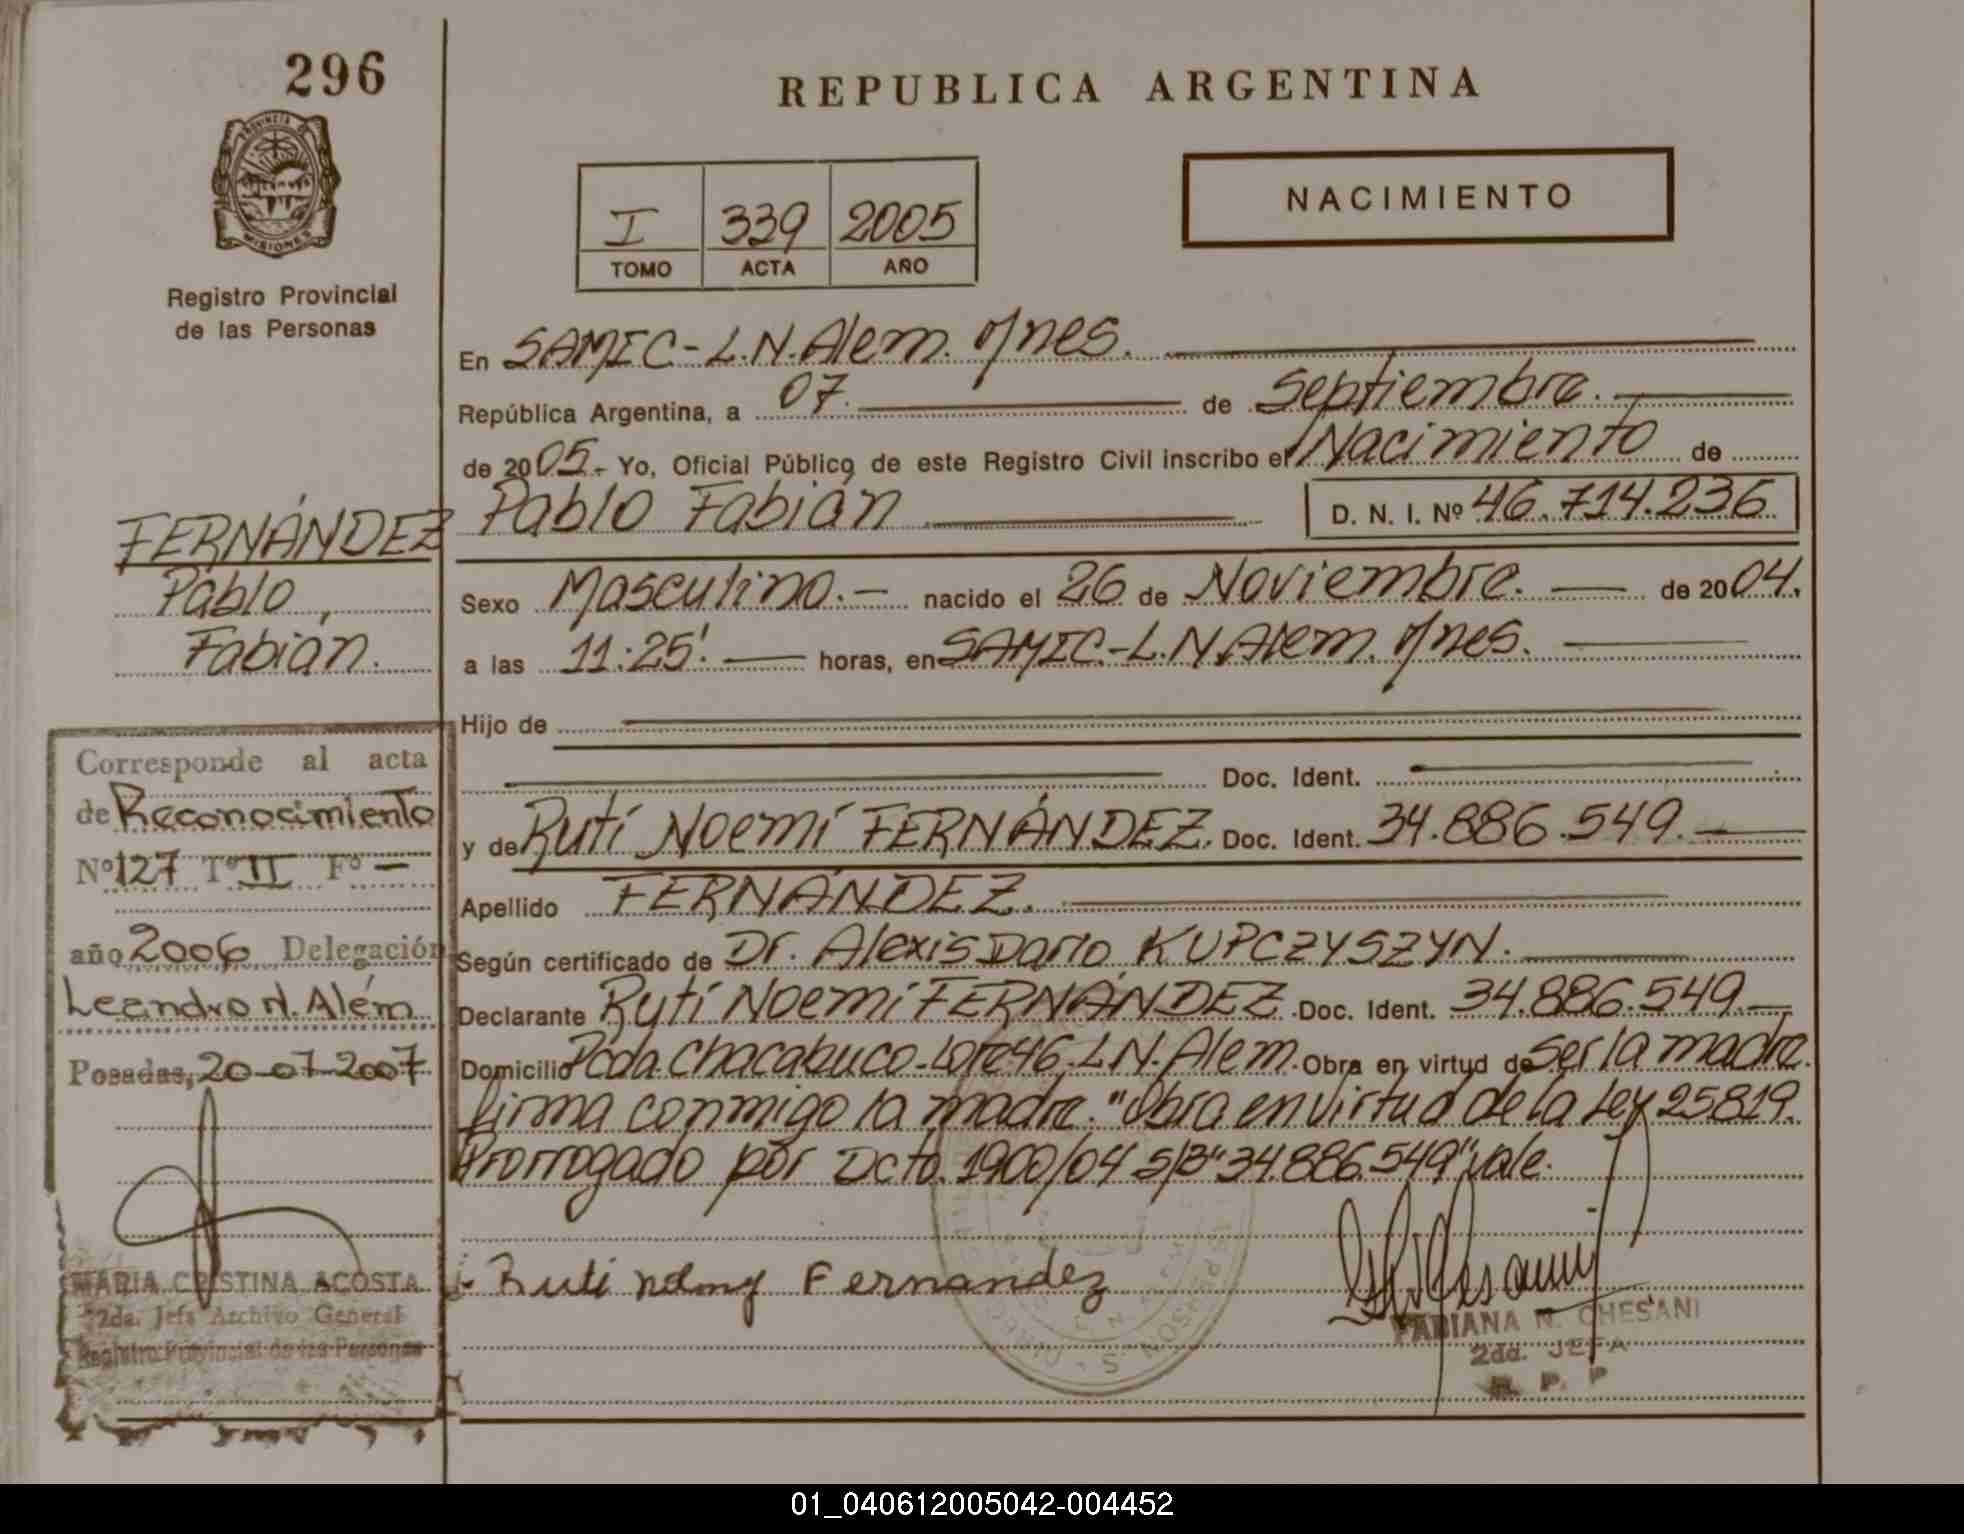 296
PROVINCIA DE
MISIONES
Registro Provincial
de las Personas
REPUBLICA ARGENTINA
NACIMIENTO
I 339 2005
TOMO ACTA AÑO
En SAMIC-L.N.Alem. Mnes.
República Argentina, a 07. de Septiembre.
de 2005.- Yo, Oficial Público de este Registro Civil inscribo el Nacimiento de
Pablo Fabián D. N. I. Nº 46.714.236
FERNÁNDEZ
Pablo,
Fabián.
Sexo Masculino.- nacido el 26 de Noviembre. de 2004.
a las 11:25'. horas, en SAMIC.-L.N.Alem. Mnes.
Hijo de
Doc. Ident.
y de Rutí Noemí FERNÁNDEZ. Doc. Ident. 34.886.549.
Apellido FERNÁNDEZ.
Según certificado de Dr. Alexis Darío KUPCZYSZYN.
Declarante Rutí Noemí FERNÁNDEZ Doc. Ident. 34.886.549.
Domicilio Pcda. Chacabuco-Lote 46.L.N.Alem. Obra en virtud de ser la madre.
firma conmigo la madre. "Obra en virtud de la Ley 25819.
Prorrogado por Dcto. 1900/04 S/B "34.886.549" vale.
Corresponde al acta
de Reconocimiento
Nº 127 Tº II Fº -
año 2006 Delegación
Leandro N. Além
Posadas, 20-07-2007
MARIA CRISTINA ACOSTA
2da. Jefa Archivo General
Registro Provincial de las Personas
Ruti Fernandez
FABIANA N. CHESANI
2da. JEFA
R. P. P
01_040612005042-004452